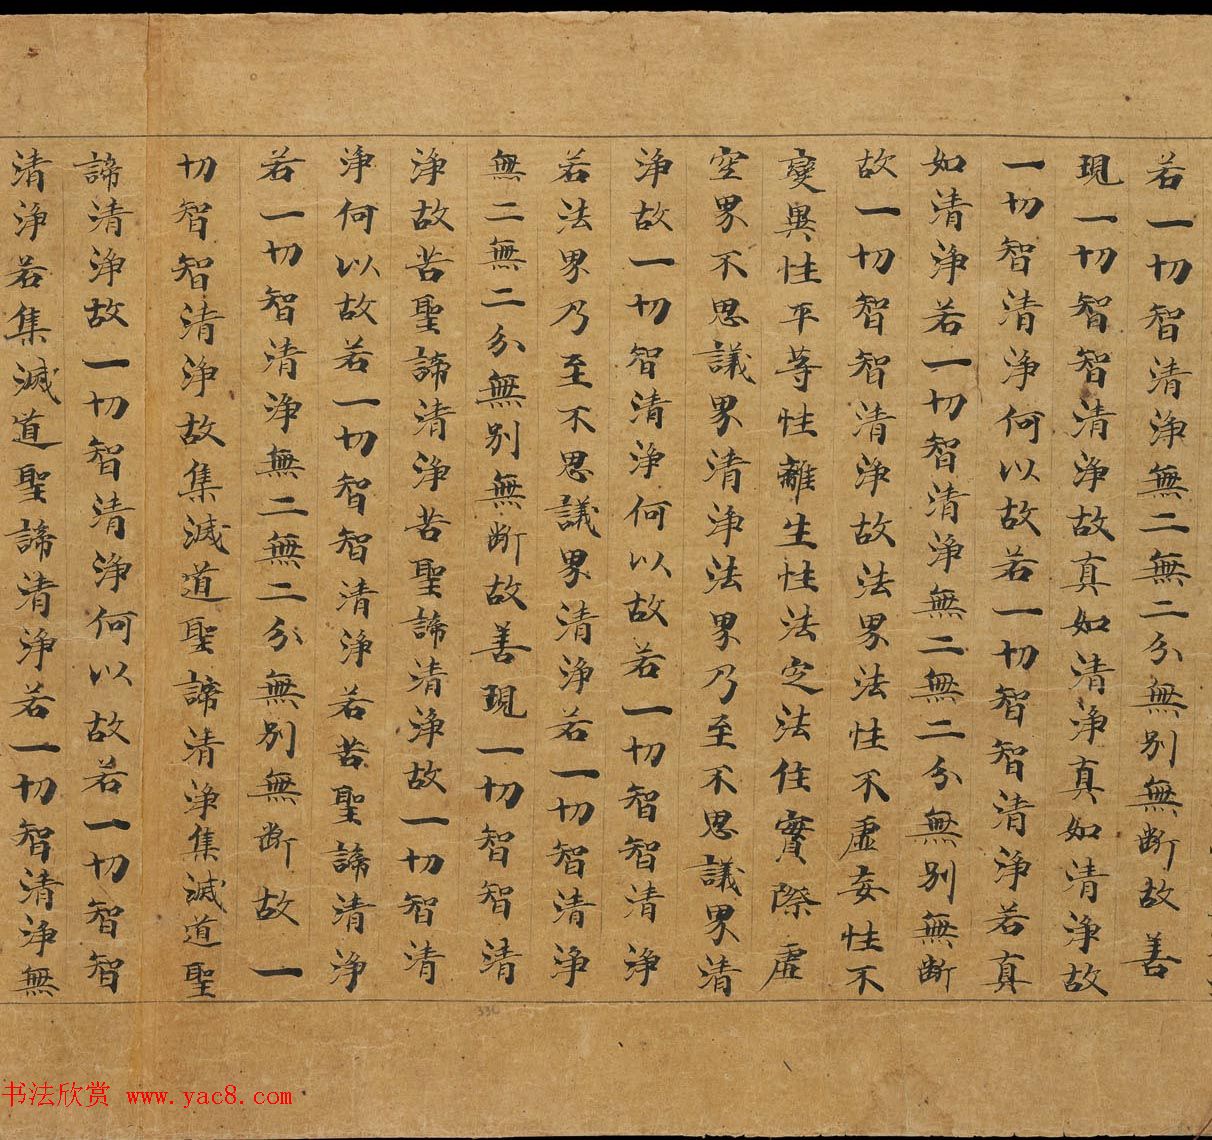 若一切智清淨無二無二分無別無斷故善
現一切智智清淨故真如清淨真如清淨故
一切智清淨何以故若一切智智清淨若真
如清淨若一切智清淨無二無二分無別無斷
故一切智智清淨故法界法性不虛妄性不
變異性平等性離生性法定法住實際虛
空界不思議界清淨法界乃至不思議界清
淨故一切智清淨何以故若一切智智清淨
若法界乃至不思議界清淨若一切智清淨
無二無二分無別無斷故善現一切智智清
淨故苦聖諦清淨苦聖諦清淨故一切智清
淨何以故若一切智智清淨若苦聖諦清淨
若一切智清淨無二無二分無別無斷故一
切智智清淨故集滅道聖諦清淨集滅道聖
諦清淨故一切智清淨何以故若一切智智
清淨若集滅道聖諦清淨若一切智清淨無
书法欣赏 www.yac8.com